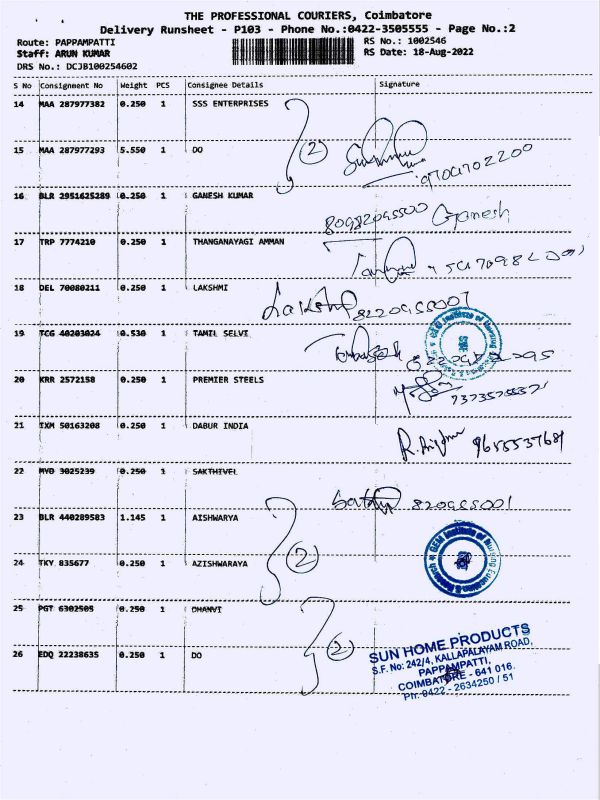 THE PROFESSIONAL COURIERS, Coimbatore
Delivery Runsheet - P103 - Phone No.:0422-3505555 - Page No.:2
Route: PAPPAMPATTI RS No.: 1002546
Staff: ARUN KUMAR RS Date: 18-Aug-2022
DRS No.: DCJB100254602
S No Consignment No Weight PCS Consignee Details Signature
14 MAA 287977382 0.250 1 SSS ENTERPRISES
2
15 MAA 287977293 5.550 1 DO
9701702200
16 BLR 2951625289 0.250 1 GANESH KUMAR
Ganesh
17 TRP 7774210 0.250 1 THANGANAYAGI AMMAN
18 DEL 70080211 0.250 1 LAKSHMI
19 TCG 40203024 0.530 1 TAMIL SELVI
20 KRR 2572158 0.250 1 PREMIER STEELS
21 TXM 50163208 0.250 1 DABUR INDIA
22 MYD 3025239 0.250 1 SAKTHIVEL
820955001
23 BLR 440289583 1.145 1 AISHWARYA
2 GEM Institute of Nursing Education & Research
24 TKY 835677 0.250 1 AZISHWARAYA
25 PGT 6302505 0.250 1 DHANVI
2
26 EDQ 22238635 0.250 1 DO
SUN HOME PRODUCTS
S.F. No: 242/4, KALLAPALAYAM ROAD,
PAPPAMPATTI,
COIMBATORE - 641 016.
Ph: 0422 - 2634250 / 51